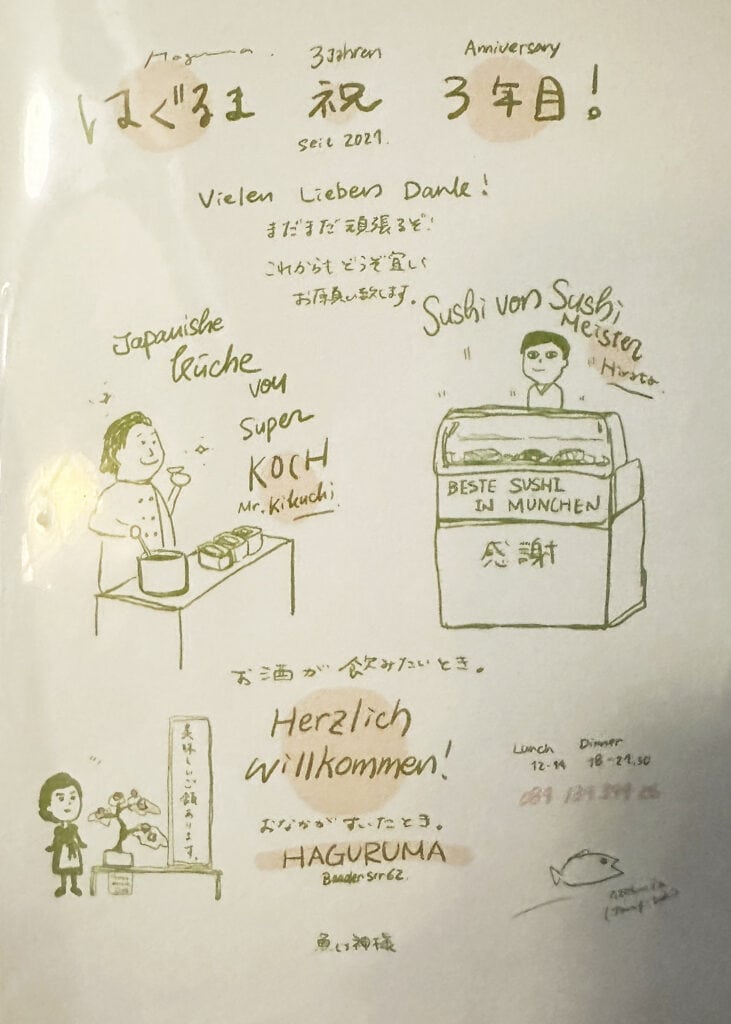 Haguruma.
3 Jahren
Anniversary
はぐるま 祝 3年目!
seit 2021.
Vielen Lieben Danke!
まだまだ頑張るぞ!
これからもどうぞ宜しく
お願い致します。
Japanishe
Küche
von
Super
KOCH
Mr. Kikuchi
Sushi von Sushi
Meister
Hirata.
BESTE SUSHI
IN MUNCHEN
感謝
お酒が飲みたいとき。
Herzlich
willkommen!
美味しいご飯あります。
おなかがすいたとき。
HAGURUMA
Baader Str 62.
Lunch Dinner
12-14 18-21.30
魚は神様